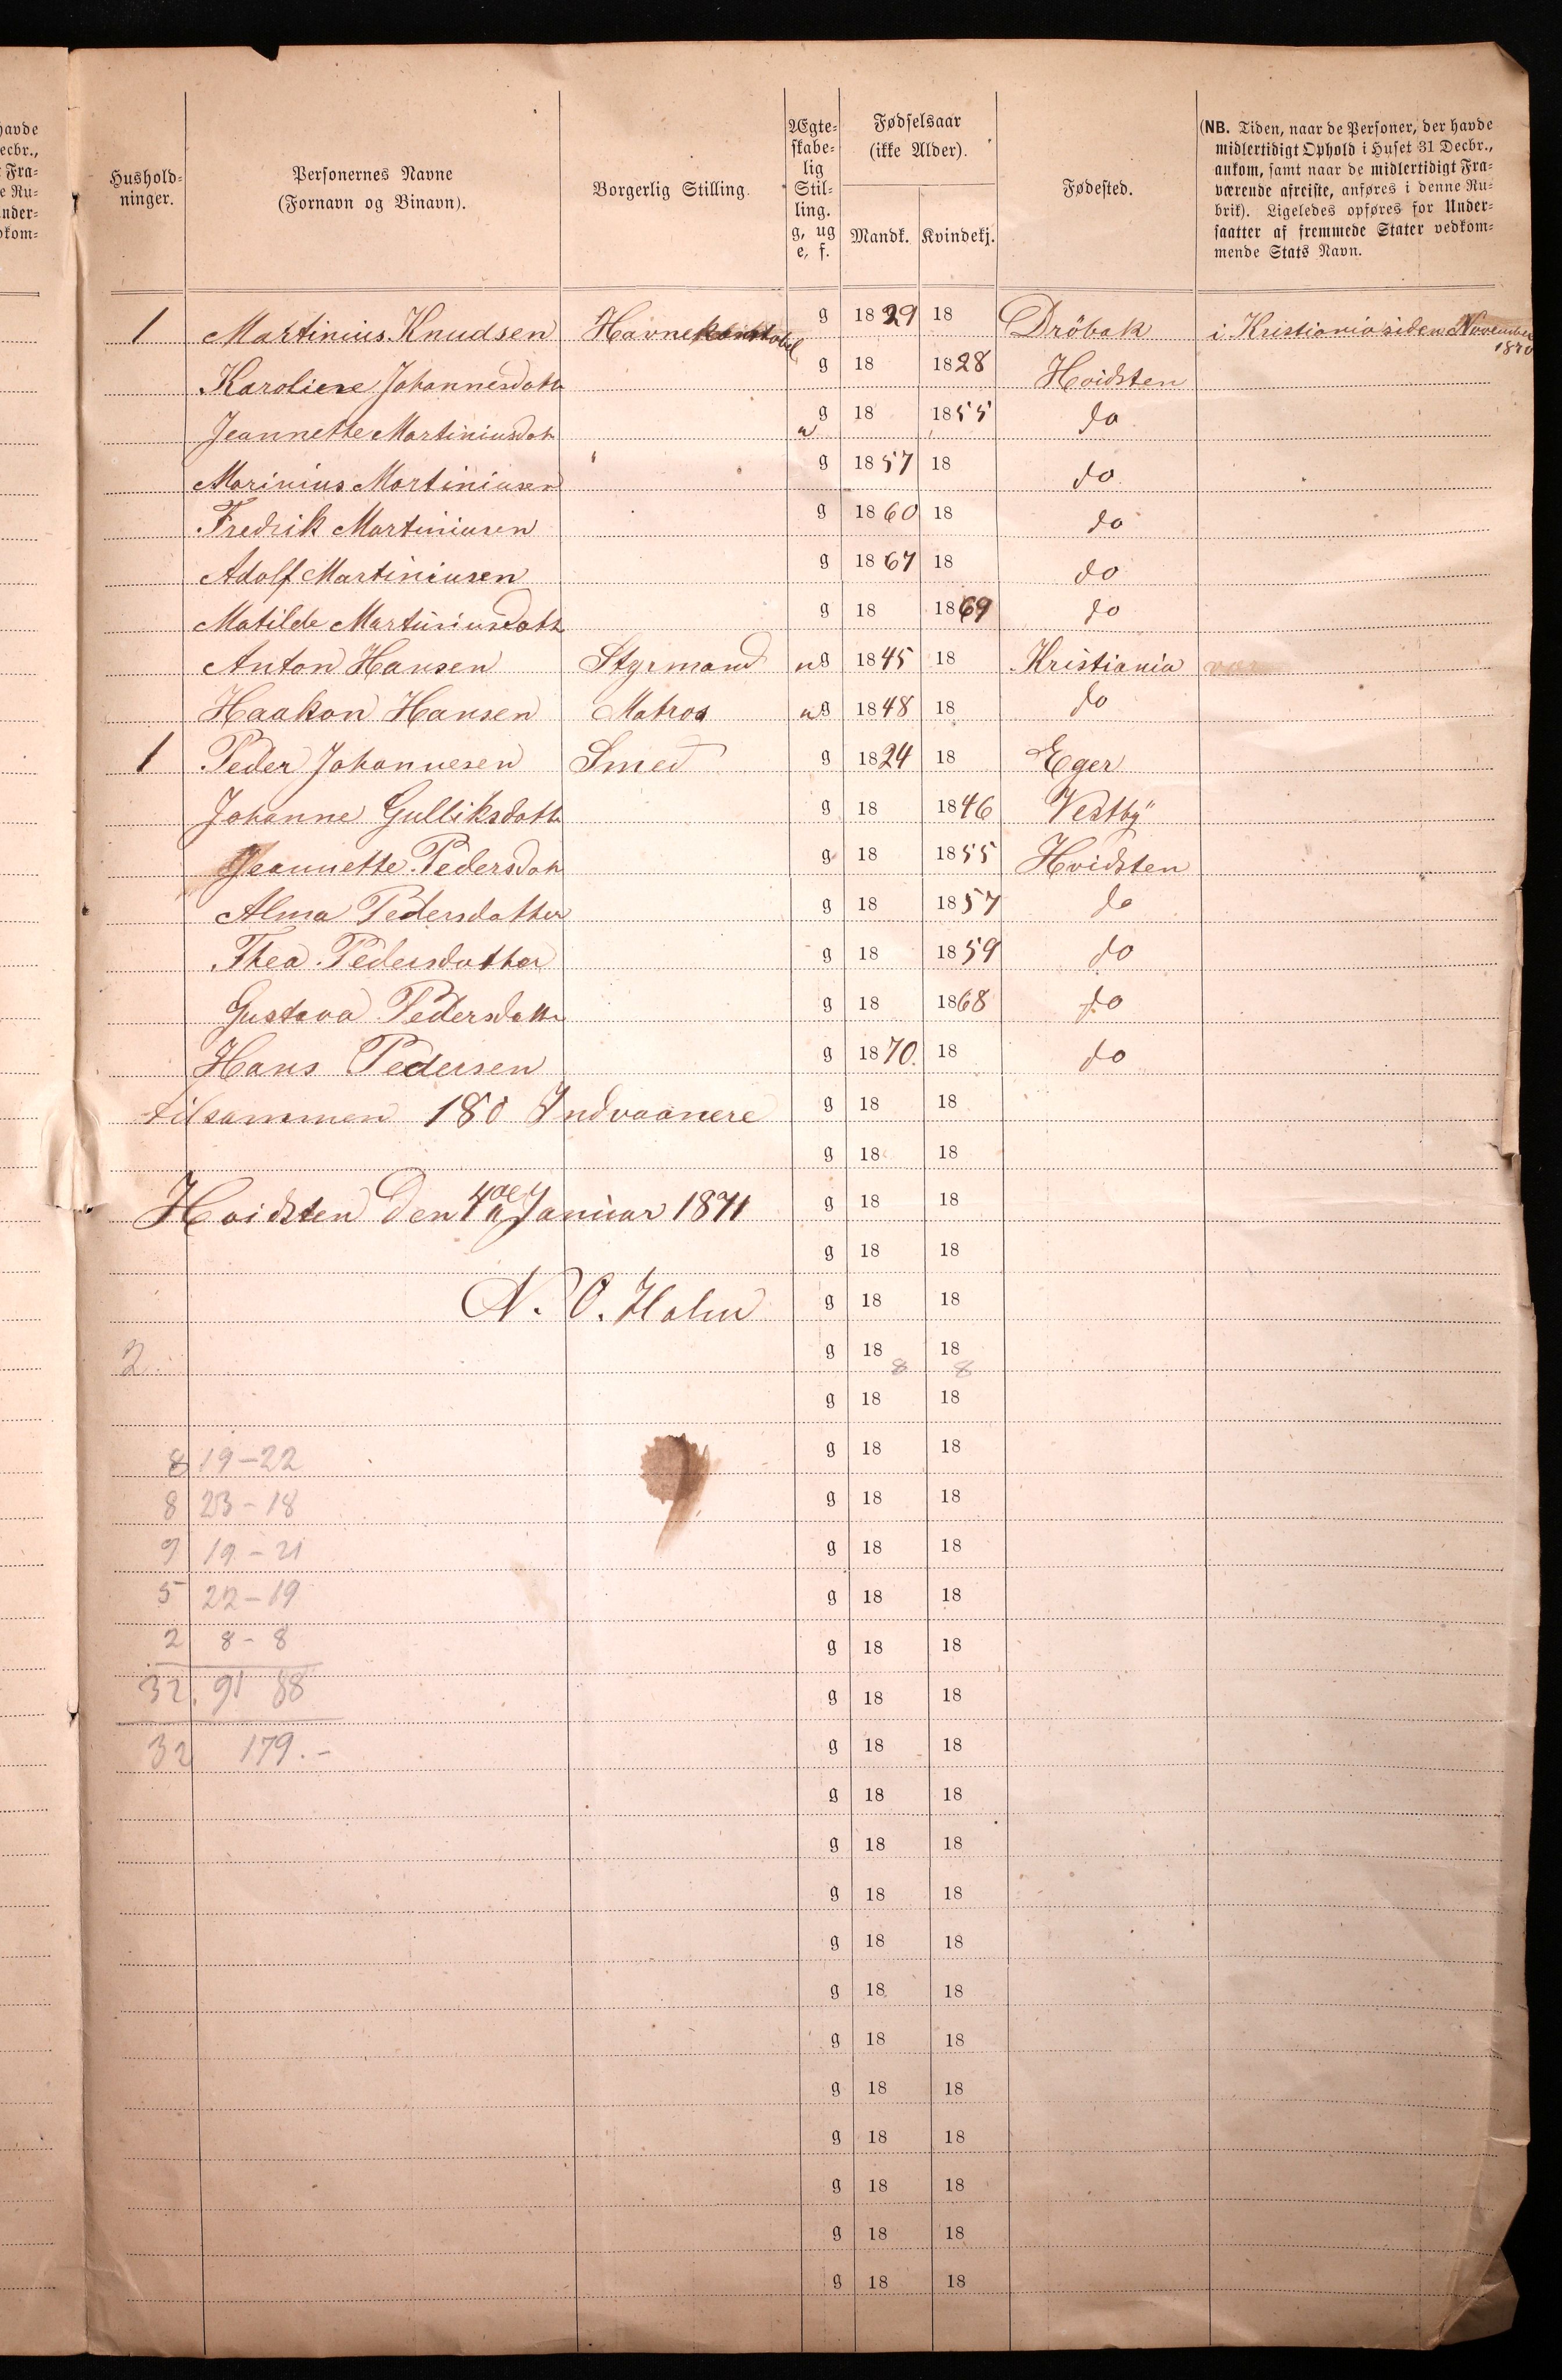 havde
ecbr.,
Fra-
e Ru-
nder-
dkom-
Hushold-
ninger.
Personernes Navne
(Fornavn og Binavn).
Borgerlig Stilling.
Ægte-
skabe-
lig
Stil-
ling.
g, ug
e, f.
Fødselsaar
(ikke Alder).
Mandk. Kvindekj.
Fødested.
(NB. Tiden, naar de Personer, der havde
midlertidigt Ophold i Huset 31 Decbr.,
ankom, samt naar de midlertidigt Fra-
værende afreiste, anføres i denne Ru-
brik). Ligeledes opføres for Under-
saatter af fremmede Stater vedkom-
mende Stats Navn.
1 Martinius Knudsen Havnekonstabel g 1829 18 Dröbak i Kristiania siden November 1870
Karoline Johannesdatt g 18 1828 Hvidsten
Jeannette Martiniusdat ug 18 1855 do
Marinius Martiniusen g 1857 18 do
Fredrik Martiniusen g 1860 18 do
Adolf Martiniusen g 1867 18 do
Matilde Martiniusdatt g 18 1869 do
Anton Hansen Styrmand ug 1845 18 Kristiania
Haakon Hansen Matros ug 1848 18 do
1 Peder Johannesen Smed g 1824 18 Eger
Johanne Gulliksdatt g 18 1846 Vestby
Jeannette Pedersdat g 18 1855 Hvidsten
Alma Pedersdatter g 18 1857 do
Thea Pedersdatter g 18 1859 do
Gustava Pedersdatt g 18 1868 do
Hans Pedersen g 1870 18 do
tilsammen 180 Indvaanere g 18 18
g 18 18
Hvidsten den Januar 1871 g 18 18
g 18 18
N. O. Holm g 18 18
2 g 18 8 18 8
g 18 18
8 19-22 g 18 18
8 23-18 g 18 18
9 19-21 g 18 18
5 22-19 g 18 18
2 8-8 g 18 18
32. 91 88 g 18 18
32 179.- g 18 18
g 18 18
g 18 18
g 18 18
g 18 18
g 18 18
g 18 18
g 18 18
g 18 18
g 18 18
g 18 18
g 18 18